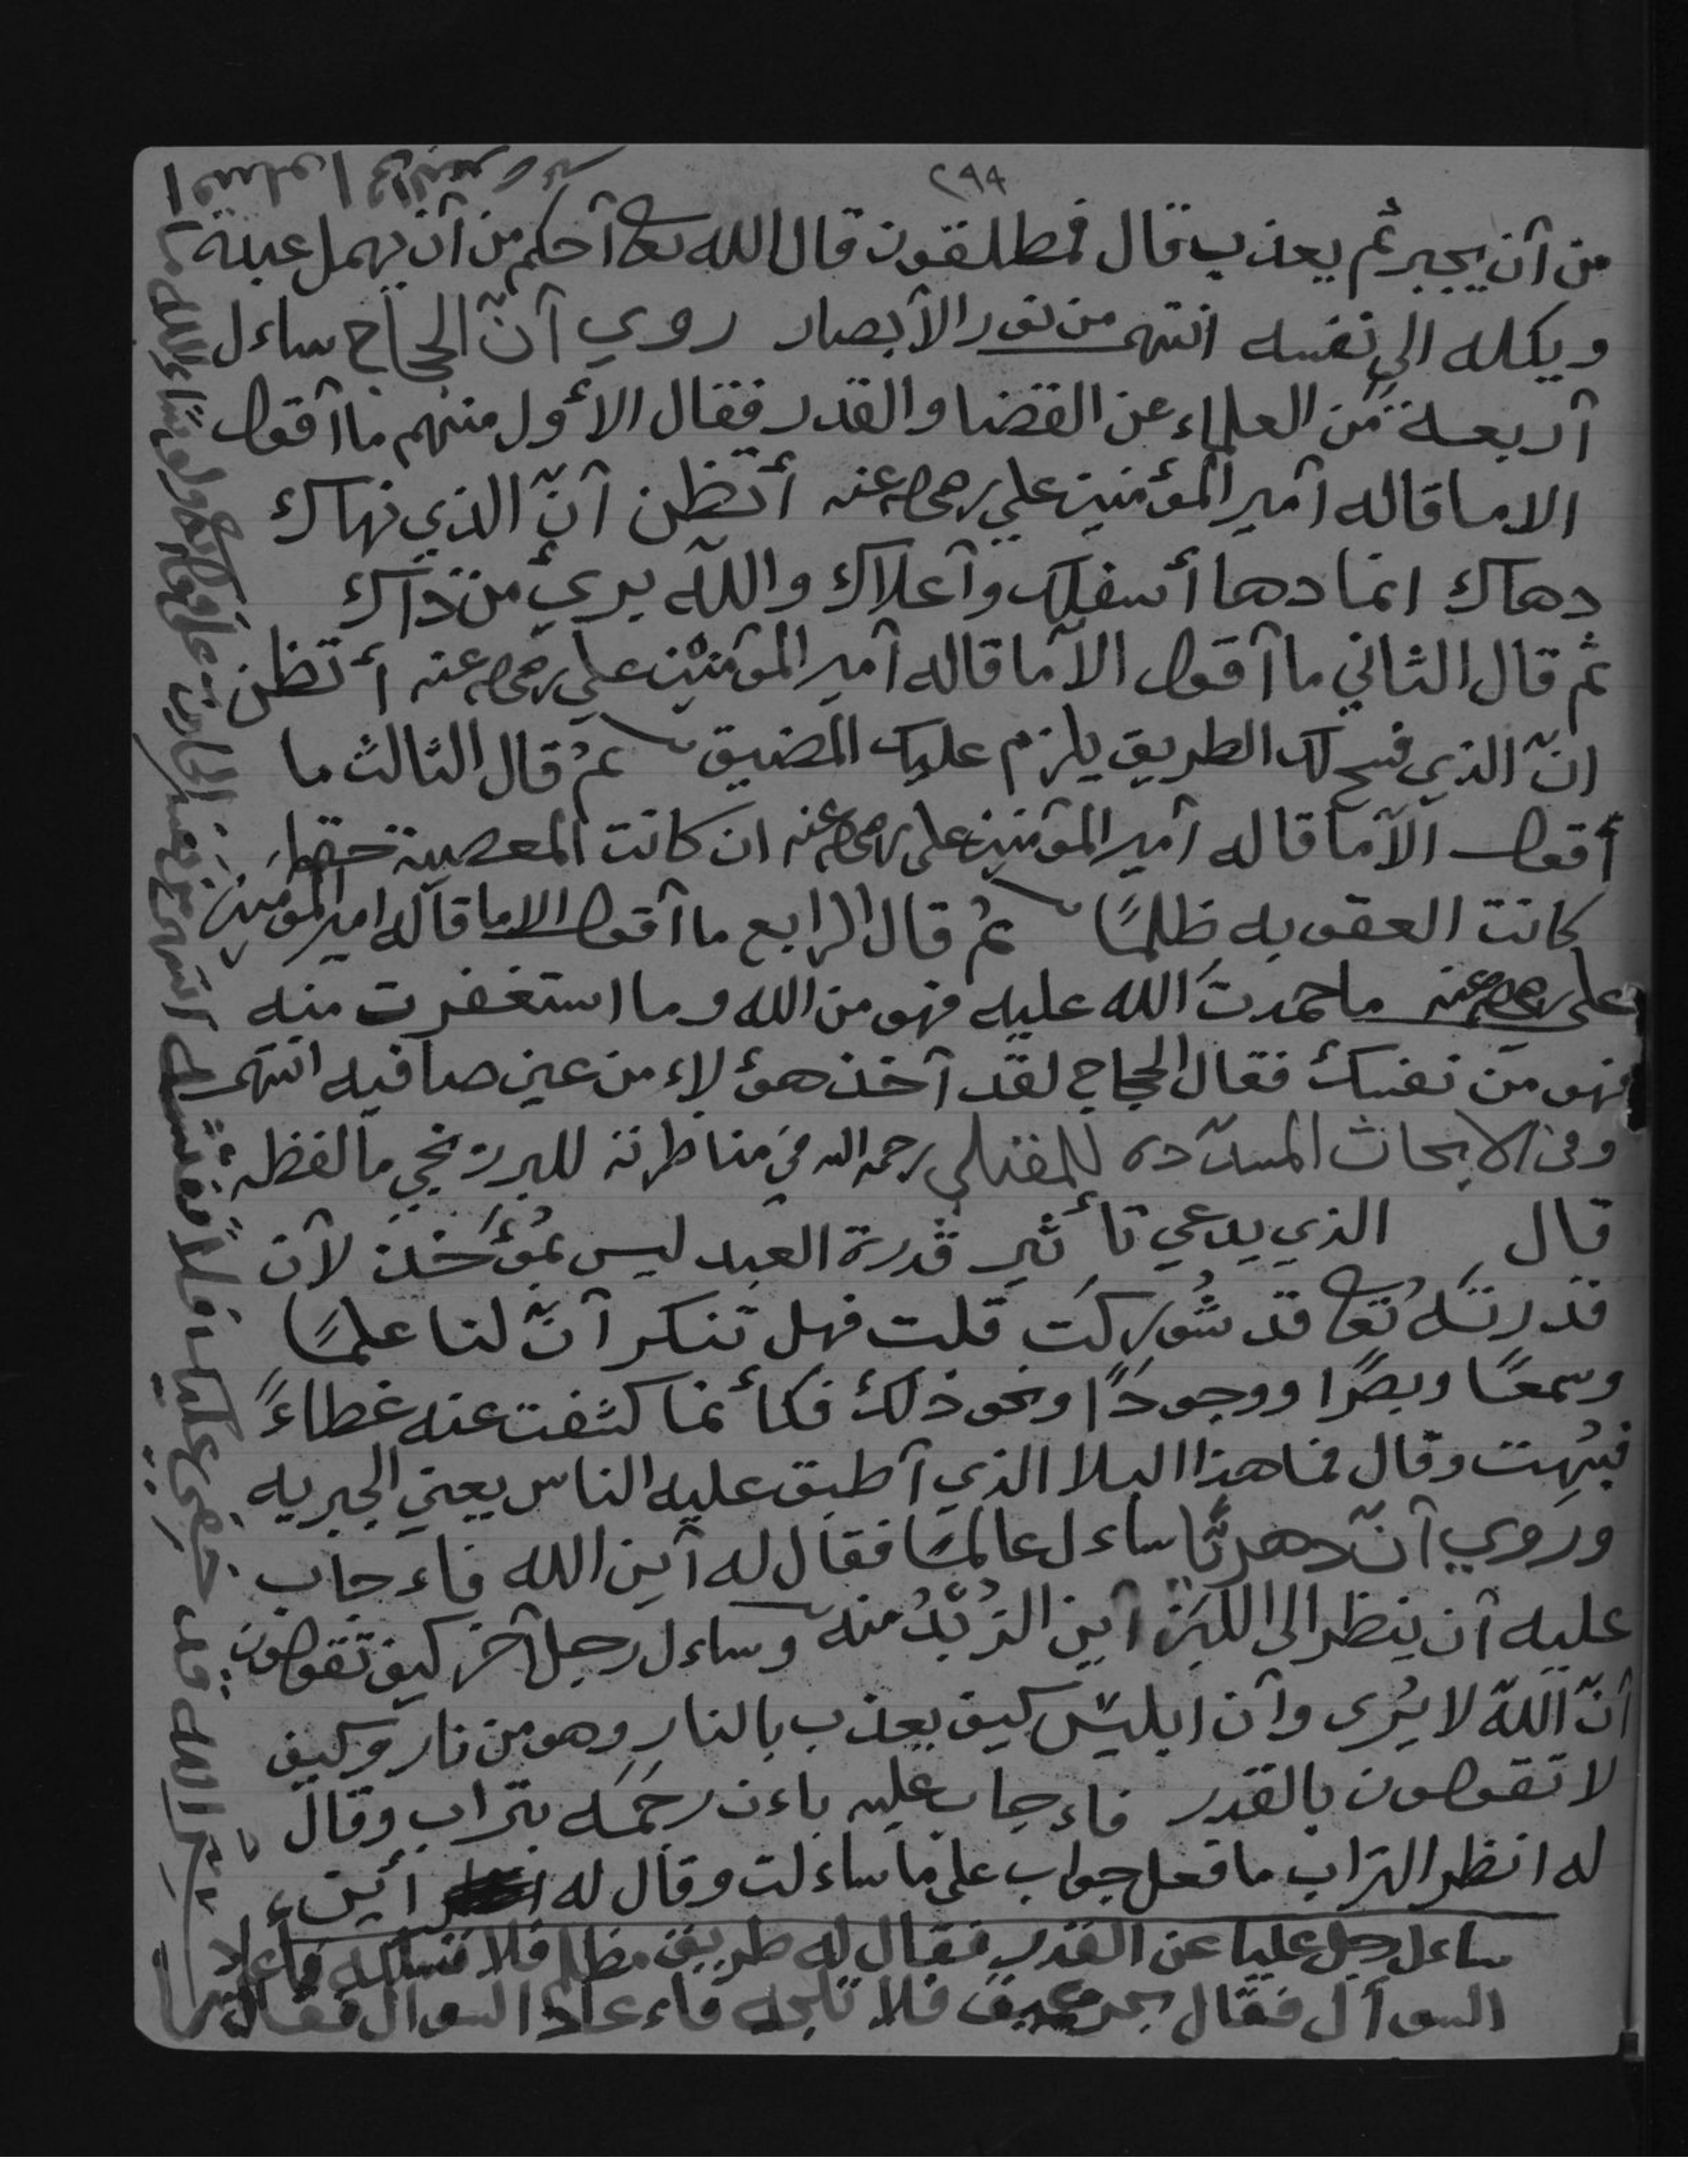 ٢٩٤
من أن يجبر ثم يعذب قال فمطلقون قال الله تعا أحكم من أن يهمل عبده
ويكله الى نفسه انتهى من نور الأبصار روي أنّ الحجاج ساءل
أربعة من العلماء عن القضا والقدر فقال الأول منهم ما أقول
الا ما قاله أمير المؤمنين علي رضي الله عنه أتظن أنّ الذي نهاك
دهاك انما دهاأسفلك وأعلاك والله بريئ من ذاك
ثم قال الثاني ما أقول الا ما قاله أمير المؤمنين علي رضي الله عنه أتظن
انّ الذي فسح لك الطريق يلزم عليك المضيق ثم قال الثالث ما
أقول الا ما قاله أمير المؤمنين علي رضي الله عنه ان كانت المعصية حتما
كانت العقوبه ظلمًا ثم قال الرابع ما أقول الا ما قاله امير المؤمنين
علي رضي الله عنه ما حمدت الله عليه فهو من الله وما استغفرت منه
فهو من نفسك فقال الحجاج لقد أخذ هؤلاء من عين صافيه انتهى
وفي الابحاث المسدّده للمقبلي رحمه الله في مناظرته للبرزنجي ما لفظه
قال الذي يدعي تأثير قدرة العبد ليس بمُؤَحّد لأن
قدرتَه تعا قد شُورِكَت قلت فهل تنكر أنّ لنا علمًا
وسمعًا وبصرًا ووجودًا ونحو ذلك فكأنما كشفت عنه غطاءً
فبُهِت وقال فما هذا البلا الذي أطبق عليه الناس يعني الجبريه
وروي أنّ دهريًا ساءل عالمًا فقال له أين الله فاءجاب
عليه أن ينظر الى اللبن أين الزُبْدُ منه وساءل رجل آخر كيف تقولون
أنّ الله لا يُرى وأن ابليس كيف يعذب بالنار وهو من نار وكيف
لا تقولون بالقدر فاءجاب عليه باءن رجَمَه بتراب وقال
له انظر التراب ما فعل جواب على ما ساءلت وقال له أين
ساءل رجل عليا عن القدر فقال له طريق مظلم فلا تسلكه فأعاد
السوأل فقال بحر عميق فلا تلجه فاءعاد السوال فقال
سر الله قد خفي عليك فلا تفتشه انتهى